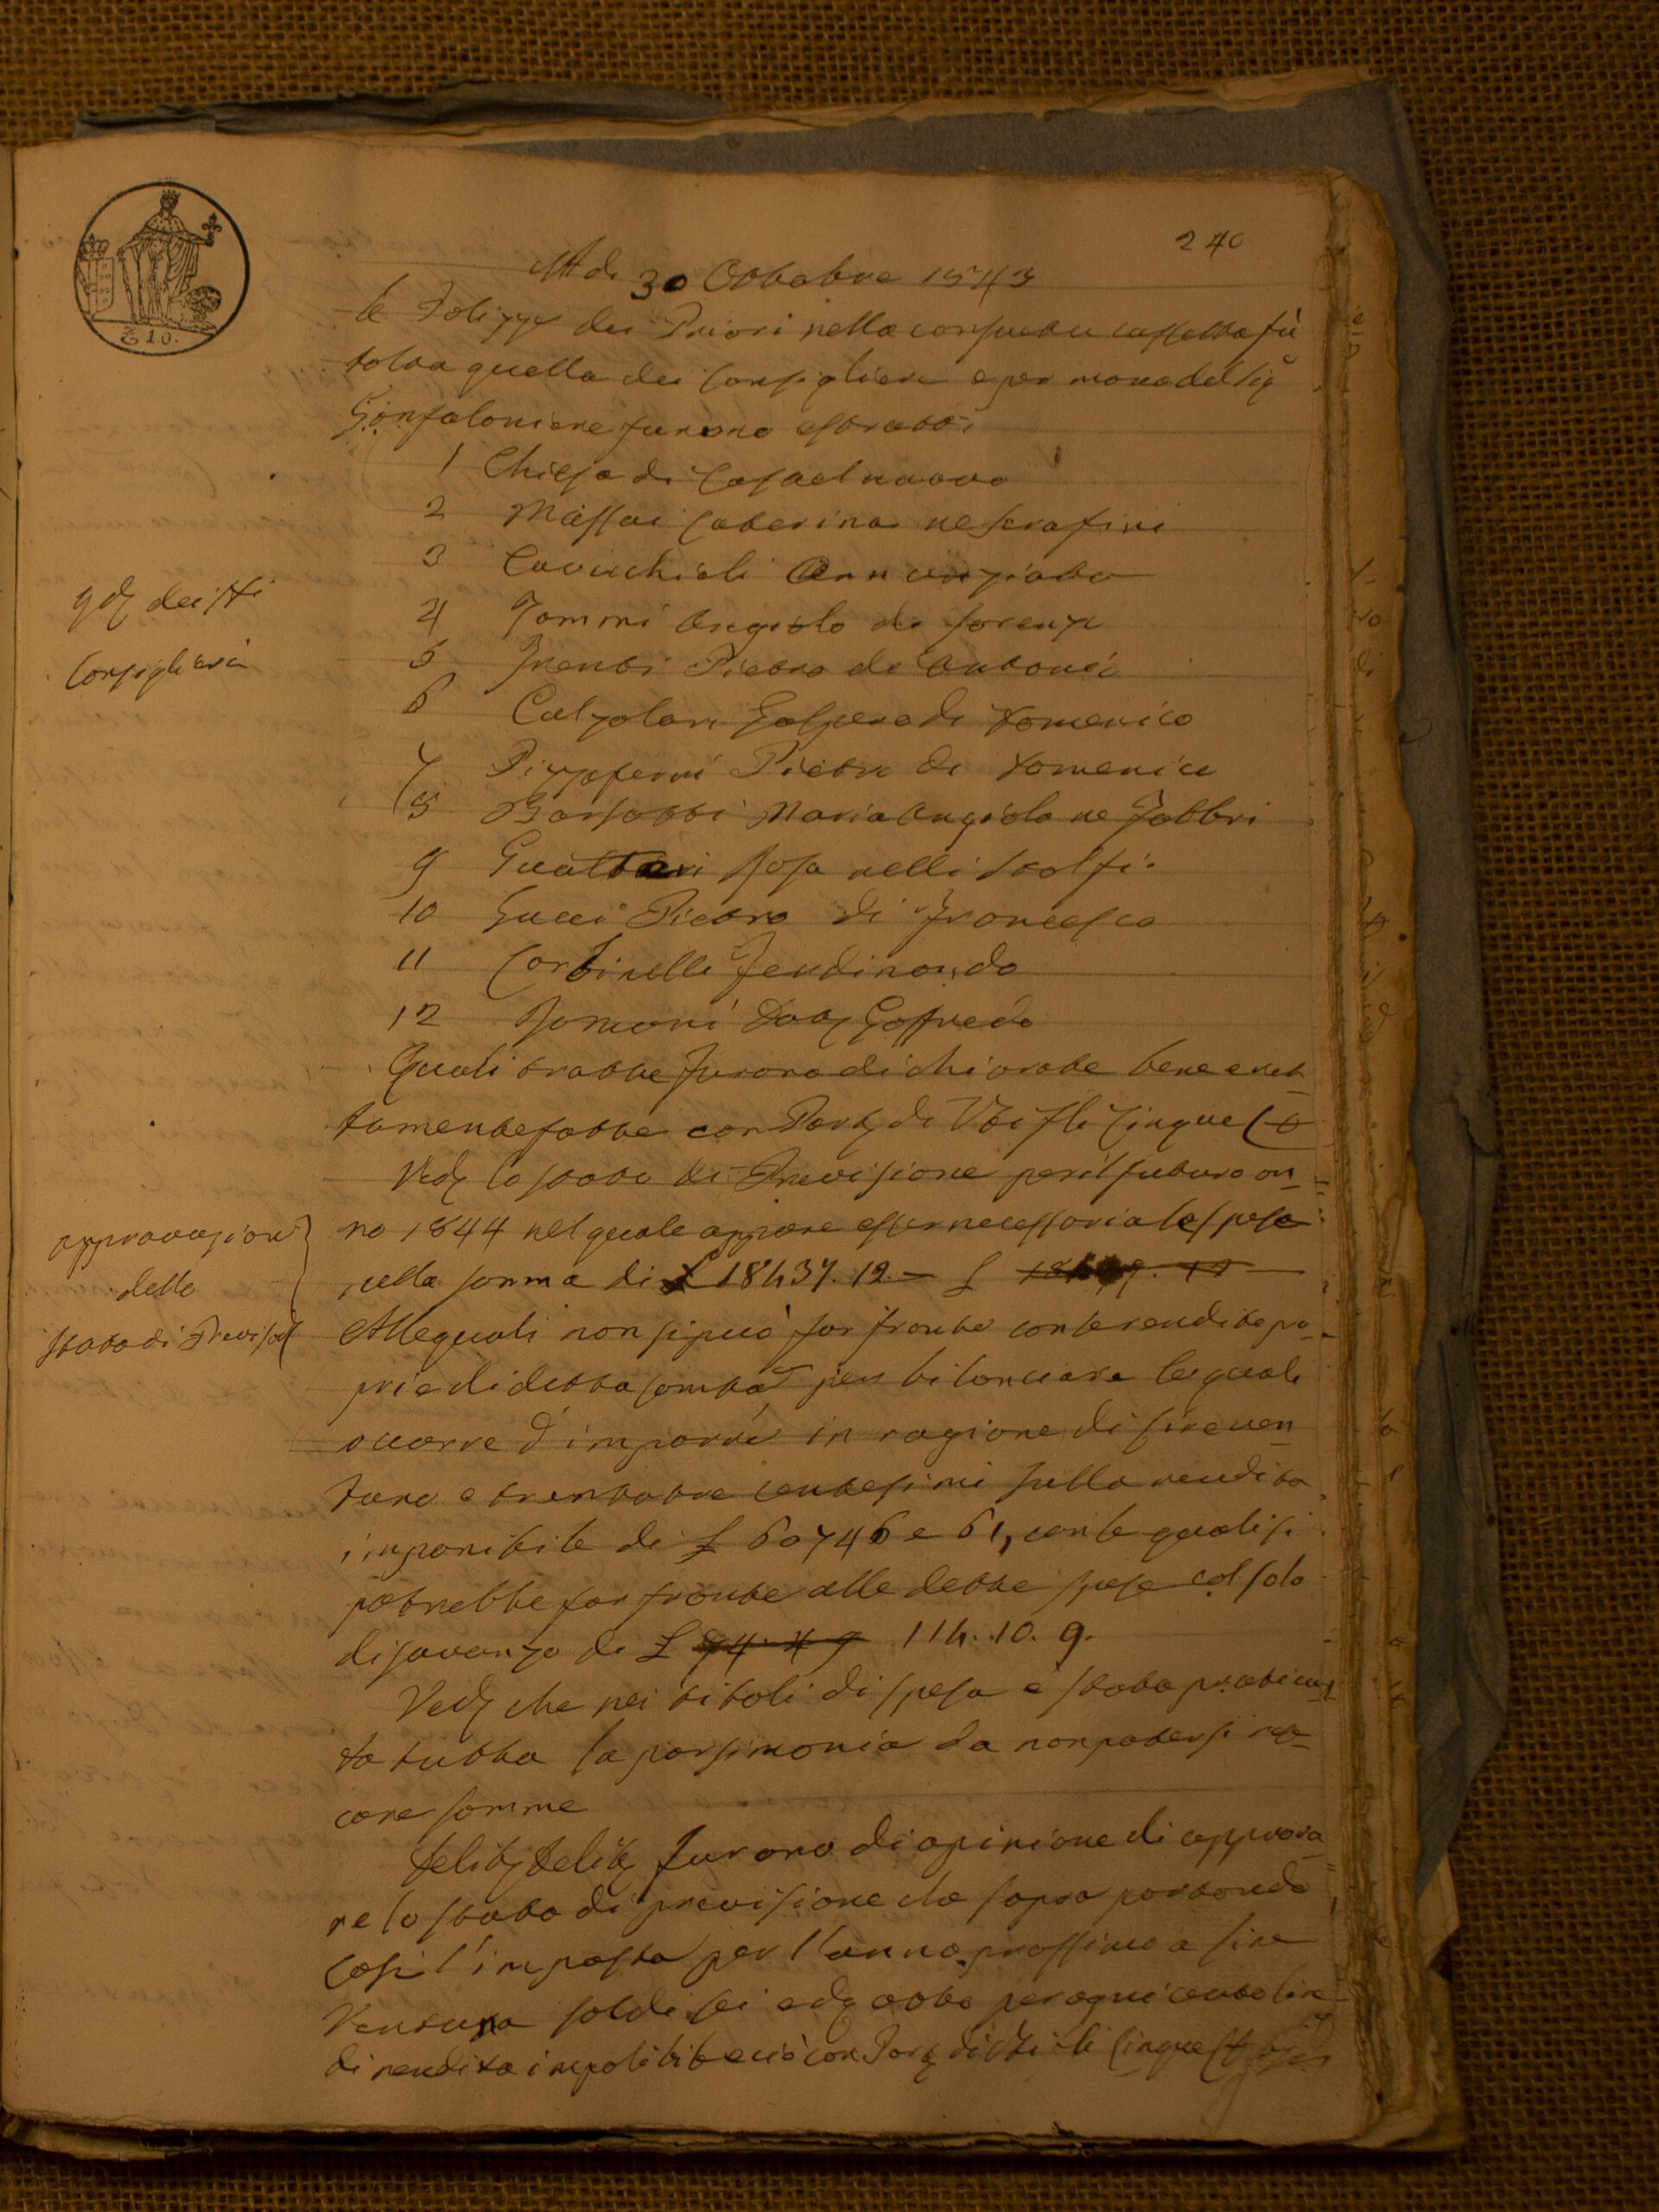 240
Adi 30 Ottobre 1843
le Polizze dei Priori nella consueta cassetta fù
tolta quella dei Consiglieri e per mano del Sig
Gonfaloniere furono estratti
1 Chiesa di Casaelnuovo
2 Massai Caterina ne Serafini
3 Cavicchioli Annunziata
4 Tommi Angiolo di Lorenzo
5 Trenti Pietro di Antonio
6 Calzolari Gaspero di Domenico
7 Pizzoferri Pietro di Domenico
8 Bassotti Maria Angiola ne Fabbri
9 Gualtieri Rosa nelli Stolfi
10 Gucci Pietro di Francesco
11 Corbinelli Ferdinando
12 Romoni Dott Goffredo
Quali tratte furono dichiarate bene e ret
tamente fatte con Part di Voti fli Cinque
Ved lo stato di Previsione per il futuro an
no 1844 nel quale appare esser necessaria la spesa
nella somma di £ 18437. 12. — £
Alle quali non si può far fronte con le rendite pro
prie di detta per bilanciare le quali
occorre d'imporre in ragione di lire ven
tuno e trentatre centesimi sulla rendita
imponibile di £ 60746 e 61, con le quali si
potrebbe far fronte alle dette spese col solo
disavanzo di £ 74. 4 9 114. 10. 9.
Ved che nei titoli di spesa è stata pratica
ta tutta la parsimonia da non potersi rese
care somme
Delib Delib furono di opinione di approva
re lo stato di previsione che sopra portando
così l'imposta per l'anno prossimo a lire
Ventuna soldi sei e d otto per ogni cento lire
di rendita impolibibe e ciò con Part di Voti fli Cinque
qd dei
Consiglieri
approvazione
dello
stato di Previsod
£ 10.